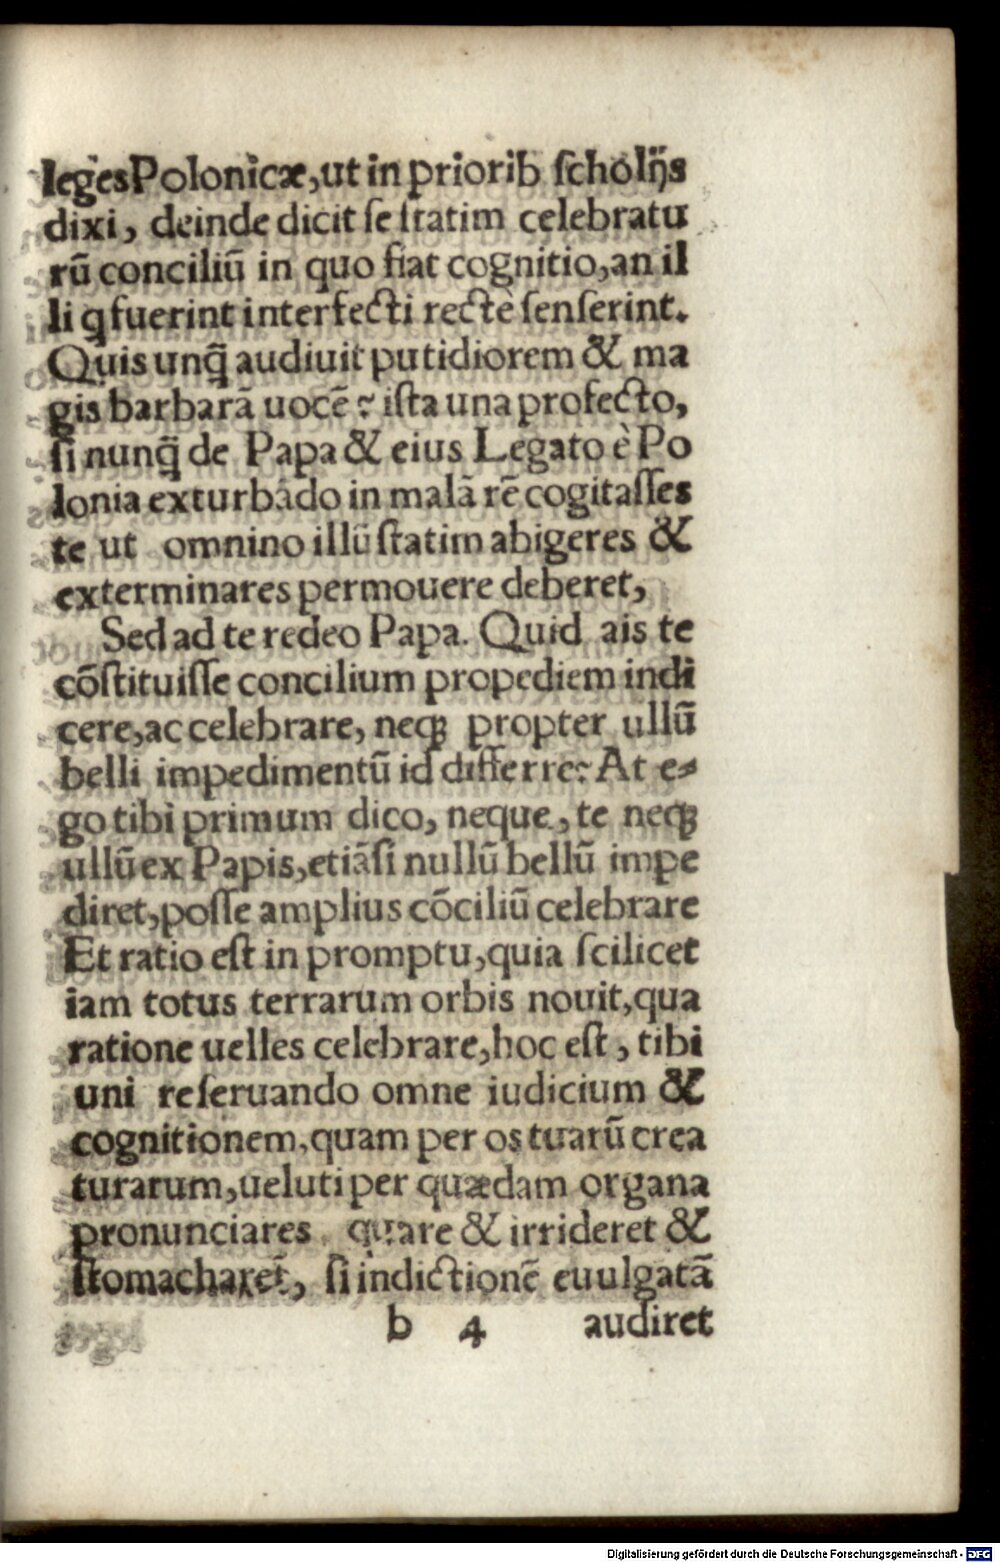 leges Polonicæ, ut in priorib ſcholijs
dixi, deinde dicit ſe ſtatim celebratu
rū conciliū in quo fiat cognitio, an il
li q̃ fuerint interfecti rectè ſenſerint.
Quis unq̃ audiuit putidiorem & ma
gis barbarā uocē? iſta una profecto,
ſi nunq̃ de Papa & eius Legato è Po
lonia exturbādo in malā rē cogitaſſes
te ut omnino illū ſtatim abigeres &
exterminares permouere deberet,
Sed ad te redeo Papa. Quid ais te
cōſtituiſſe concilium propediem indi
cere, ac celebrare, neqꝫ propter ullū
belli impedimentū id differre? At e-
go tibi primum dico, neque, te neqꝫ
ullū ex Papis, etiāſi nullū bellū impe
diret, poſſe amplius cōciliū celebrare
Et ratio eſt in promptu, quia ſcilicet
iam totus terrarum orbis nouit, qua
ratione uelles celebrare, hoc eſt, tibi
uni reſeruando omne iudicium &
cognitionem, quam per os tuarū crea
turarum, ueluti per quædam organa
pronunciares quare & irrideret &
ſtomacharet̃, ſi indictionē euulgatā
b 4 audiret
Digitalisierung gefördert durch die Deutsche Forschungsgemeinschaft - DFG